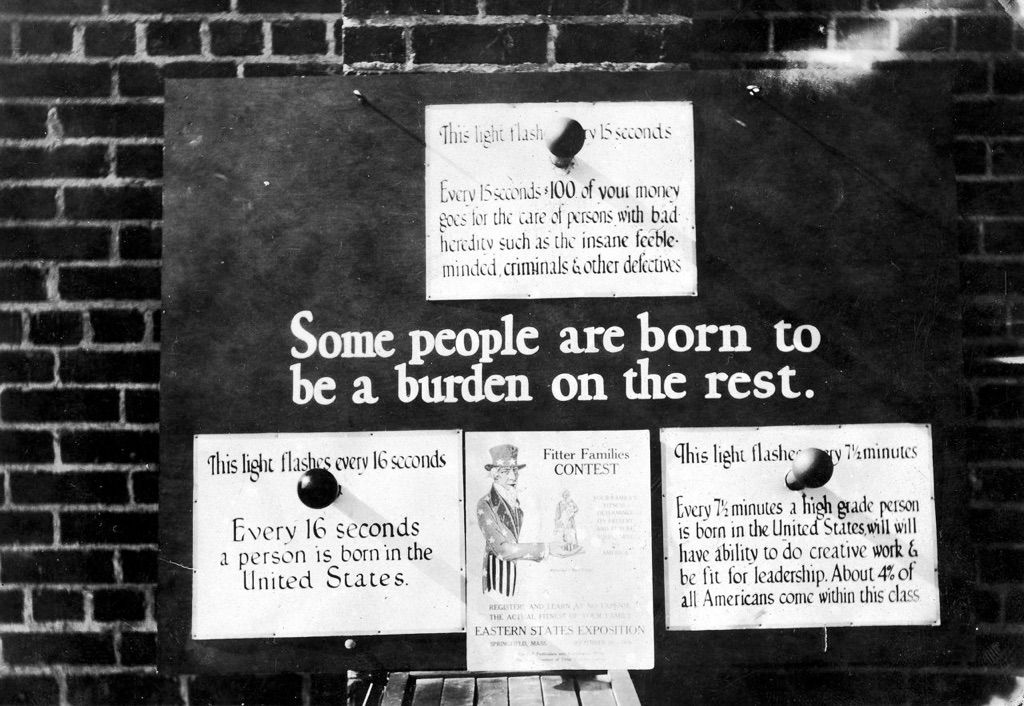 This light flash ry 15 seconds
Every 15 seconds $100 of your money
goes for the care of persons with bad
heredity such as the insane feeble-
minded, criminals & other defectives
Some people are born to
be a burden on the rest.
This light flashes every 16 seconds
Every 16 seconds
a person is born in the
United States.
Fitter Families
CONTEST
YOUR FAMILY'S
FITNESS
REGISTER AND LEARN AT NO EXPENSE
THE ACTUAL FITNESS OF YOUR FAMILY
EASTERN STATES EXPOSITION
SPRINGFIELD, MASS. SEPTEMBER
This light flashe ry 7½ minutes
Every 7½ minutes a high grade person
is born in the United States will will
have ability to do creative work &
be fit for leadership. About 4% of
all Americans come within this class